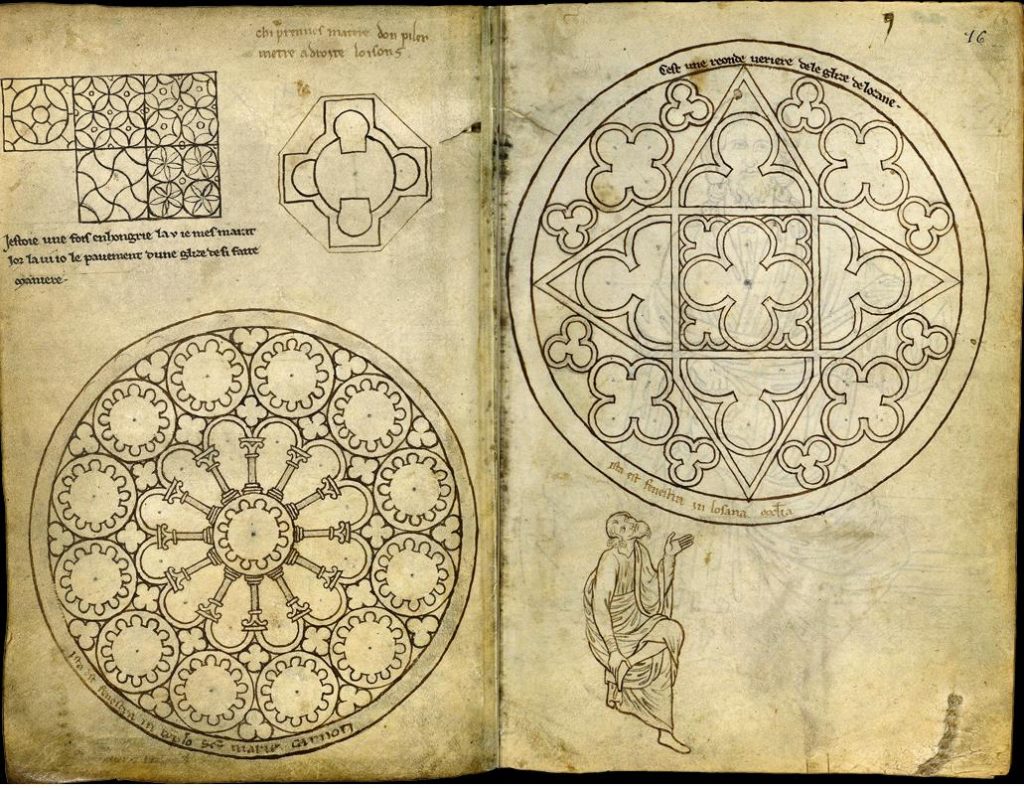 chi prennes matire don piler
metre adroite loisons
Jestoie une fois enhongrie la u ie mes maint
ior la ui io le pauement dune glize desi faite
maniere.
ista est fenestra in templo sce marie carnoti
16
Cest une reonde ueriere dele glize de lozane.
ista est fenestra in losana